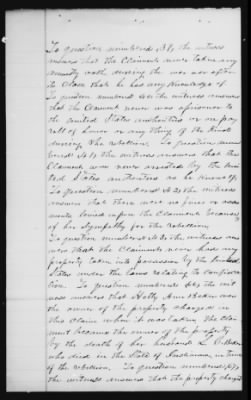 To question numbered 39, the witness
means that the Claimant never taken any
amnesty oath during the war nor after
its close that he has any knowledge of
To question numbered 40 the witness answers
that the Claimant never was a prisoner to
the United States authorities or on pay
roll of honor or any thing of the kind
during the rebellion. To question num
bered 41 the witness answers that the
Claimant was never arrested by the Uni
ted States authorities as he knows of.
To question numbered 42 the witness
answers that there were no fines or assess
ments levied upon the Claimant because
of her sympathy for the rebellion,
To question numbered the witness ans
wers that the Claimant never had any
property taken into possession by the United
States under the laws relating to confisca
tion. To question numbered the wit
ness answers that Holly Ann Baker was
the owner of the property charged in
this claim when it was taken, the Clai
mant became the owner of the property
by the death of her husband
who died in the State of in time
of the rebellion. To question numbered
the witness answers that the property charged